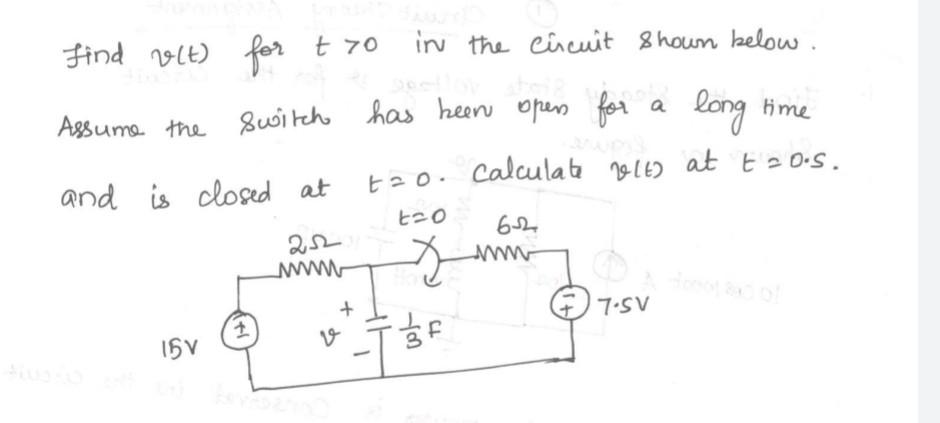 Find v(t) for t > 0 in the circuit shown below.
Assume the switch has been open for a long time
and is closed at t = 0. Calculate v(t) at t = 0.5.
t=0
2Ω
6Ω
+
v
-
1/3 F
±
15V
-
+
7.5V